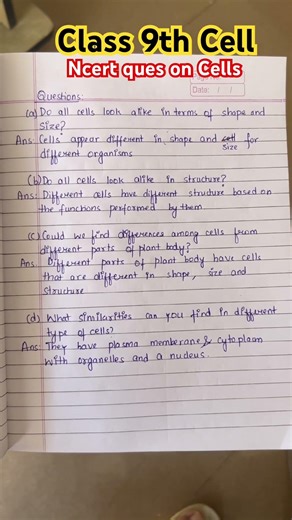 Class 9th Cell
Ncert ques on Cells
Data: / /
Questions:
(a) Do all cells look alike in terms of shape and
size?
Ans: Cells appear different in shape and cell for
size
different organisms
(b) Do all cells look alike in structure?
Ans: Different cells have different structure based on
the functions performed by them
(c) Could we find differences among cells from
different parts of plant body?
Ans: Different parts of plant body have cells
that are different in shape, size and
structure
(d) What similarities can you find in different
type of cells?
Ans: They have plasma membrane, & cytoplasm
with organelles and a nucleus.